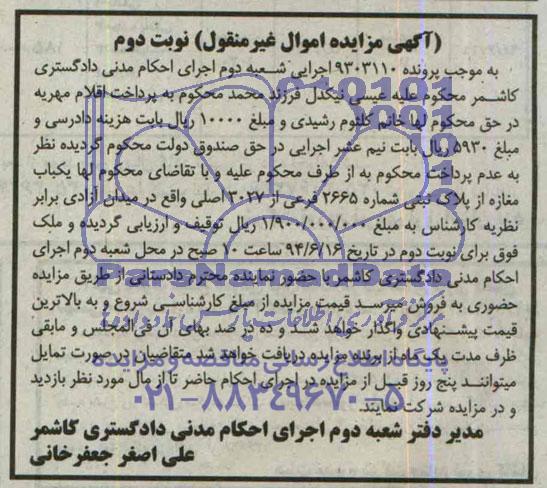 (آگهی مزایده اموال غیرمنقول) نوبت دوم
به موجب پرونده ۹۳۰۳۱۱۰ اجرایی شعبه دوم اجرای احکام مدنی دادگستری
کاشمر محکوم علیه عیسی نیکدل فرزند محمد محکوم به پرداخت اقلام مهریه
در حق محکوم لها خانم کلثوم رشیدی و مبلغ ۱۰۰۰۰ ریال بابت هزینه دادرسی و
مبلغ ۵۹۳۰ ریال بابت نیم عشر اجرایی در حق صندوق دولت محکوم گردیده نظر
به عدم پرداخت محکوم به از طرف محکوم علیه و با تقاضای محکوم لها یکباب
مغازه از پلاک ثبتی شماره ۲۶۶۵ فرعی از ۳۰۲۷ اصلی واقع در میدان آزادی برابر
نظریه کارشناس به مبلغ ۱/۹۰۰/۰۰۰/۰۰۰ ریال توقیف و ارزیابی گردیده و ملک
فوق برای نوبت دوم در تاریخ ۹۴/۶/۱۶ ساعت ۱۰ صبح در محل شعبه دوم اجرای
احکام مدنی دادگستری کاشمر با حضور نماینده محترم دادستانی از طریق مزایده
حضوری به فروش میرسد قیمت مزایده از مبلغ کارشناسی شروع و به بالاترین
قیمت پیشنهادی واگذار خواهد شد و ده در صد بهای آن فی‌المجلس و مابقی
ظرف مدت یک ماه از برنده مزایده دریافت خواهد شد متقاضیان در صورت تمایل
میتوانند پنج روز قبل از مزایده در اجرای احکام حاضر تا از مال مورد نظر بازدید
و در مزایده شرکت نمایند.
مدیر دفتر شعبه دوم اجرای احکام مدنی دادگستری کاشمر
علی اصغر جعفرخانی
ParsNamadData
پایگاه اطلاع رسانی مناقصه و مزایده
۰۲۱-۸۸۳۴۹۶۷۰-۵